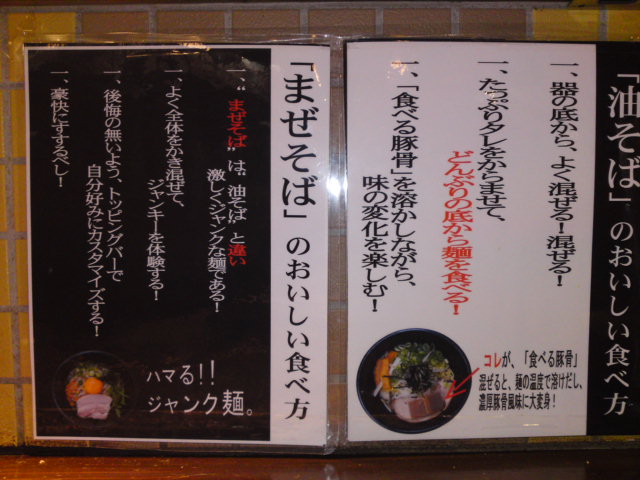 「油そば」のおいしい食べ方
一、器の底から、よく混ぜる！混ぜる！
一、たっぷりタレをからませて、
どんぶりの底から麺を食べる！
一、「食べる豚骨」を溶かしながら、
味の変化を楽しむ！
コレが、「食べる豚骨」
混ぜると、麺の温度で溶けだし、
濃厚豚骨風味に大変身！
「まぜそば」のおいしい食べ方
一、“まぜそば”は“油そば”と違い
激しくジャンクな麺である！
一、よく全体をかき混ぜて、
ジャンキーを体験する！
一、後悔の無いよう、トッピングバーで
自分好みにカスタマイズする！
一、豪快にすするべし！
ハマる！！
ジャンク麺。